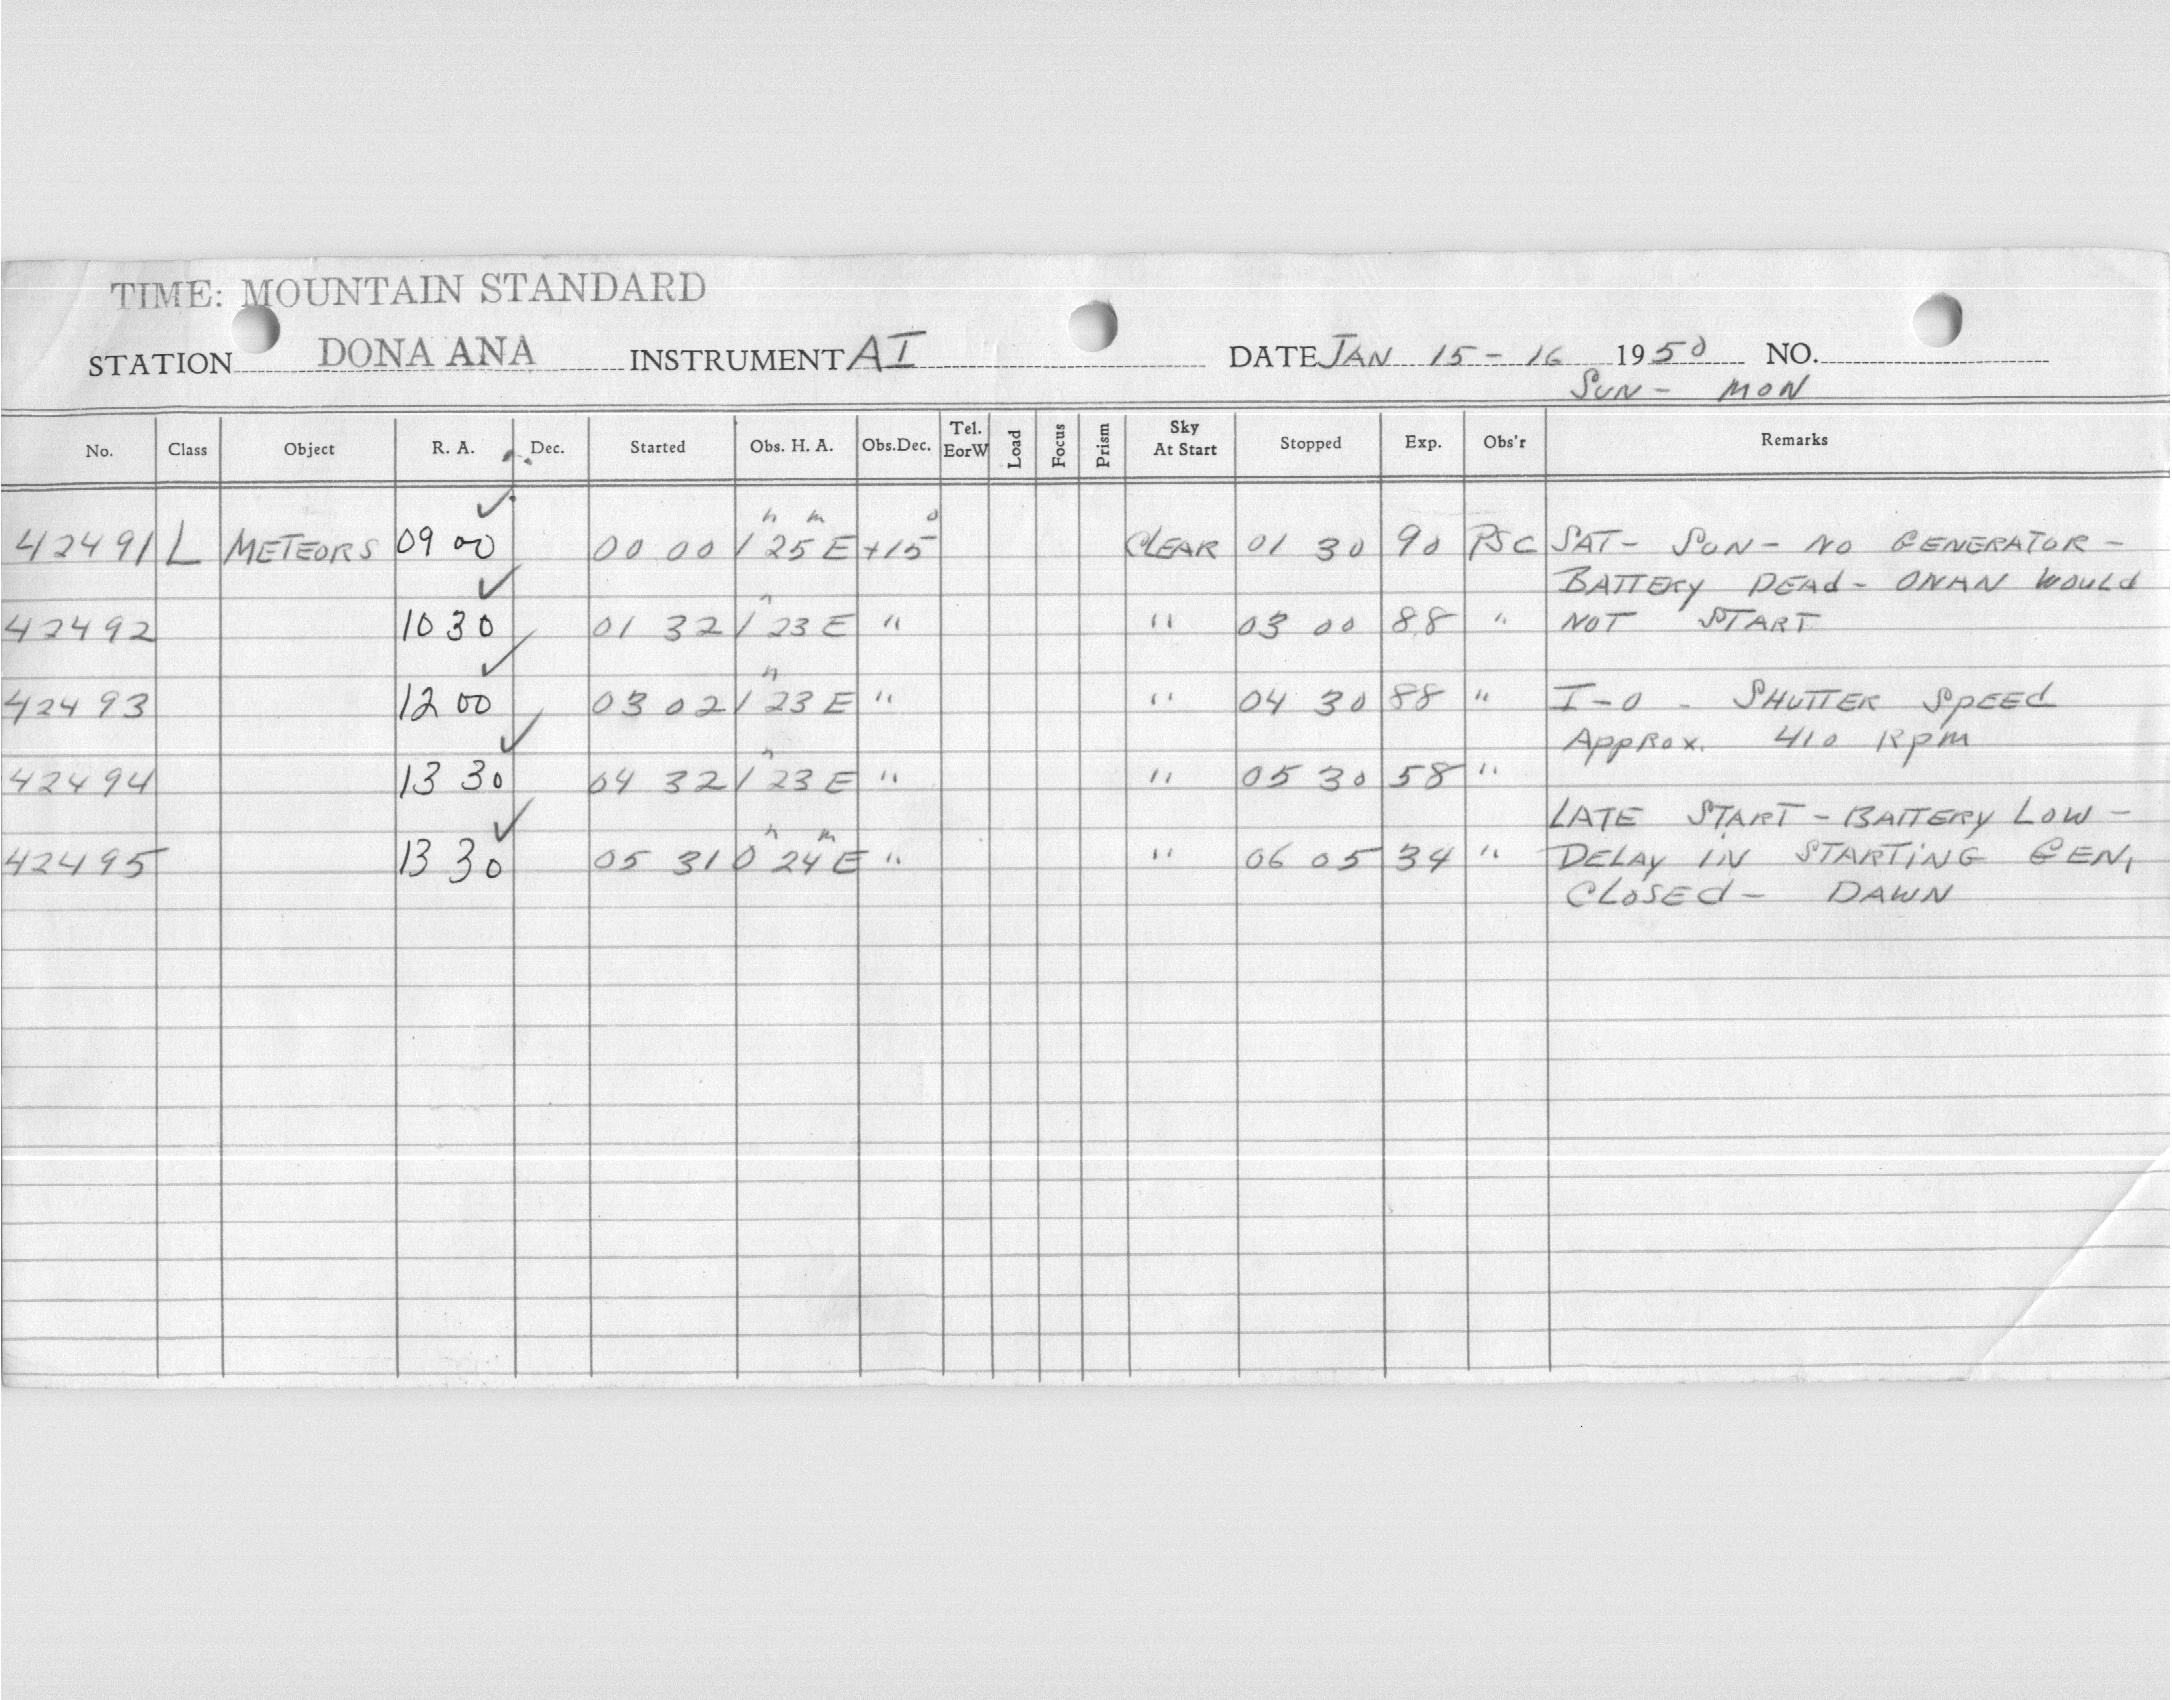 TIME: MOUNTAIN STANDARD
STATION DONA ANA INSTRUMENT AI DATE JAN 15-16 1950 NO.
SUN - MON
No. Class Object R. A. Dec. Started Obs. H. A. Obs.Dec. Tel. EorW Load Focus Prism Sky At Start Stopped Exp. Obs'r Remarks
42491 L METEORS 09 00 ✓ 00 00 1h 25m E +15° CLEAR 01 30 90 PSC SAT- SUN- NO GENERATOR-
BATTERY DEAD- ONAN WOULD
42492 10 30 ✓ 01 32 1h 23 E " " 03 00 88 " NOT START
42493 12 00 ✓ 03 02 1h 23 E " " 04 30 88 " I-0 - SHUTTER SPEED
APPROX. 410 RPM
42494 13 30 ✓ 04 32 1h 23 E " " 05 30 58 "
LATE START - BATTERY LOW -
42495 13 30 ✓ 05 31 0h 24m E " " 06 05 34 " DELAY IN STARTING GEN,
CLOSED - DAWN